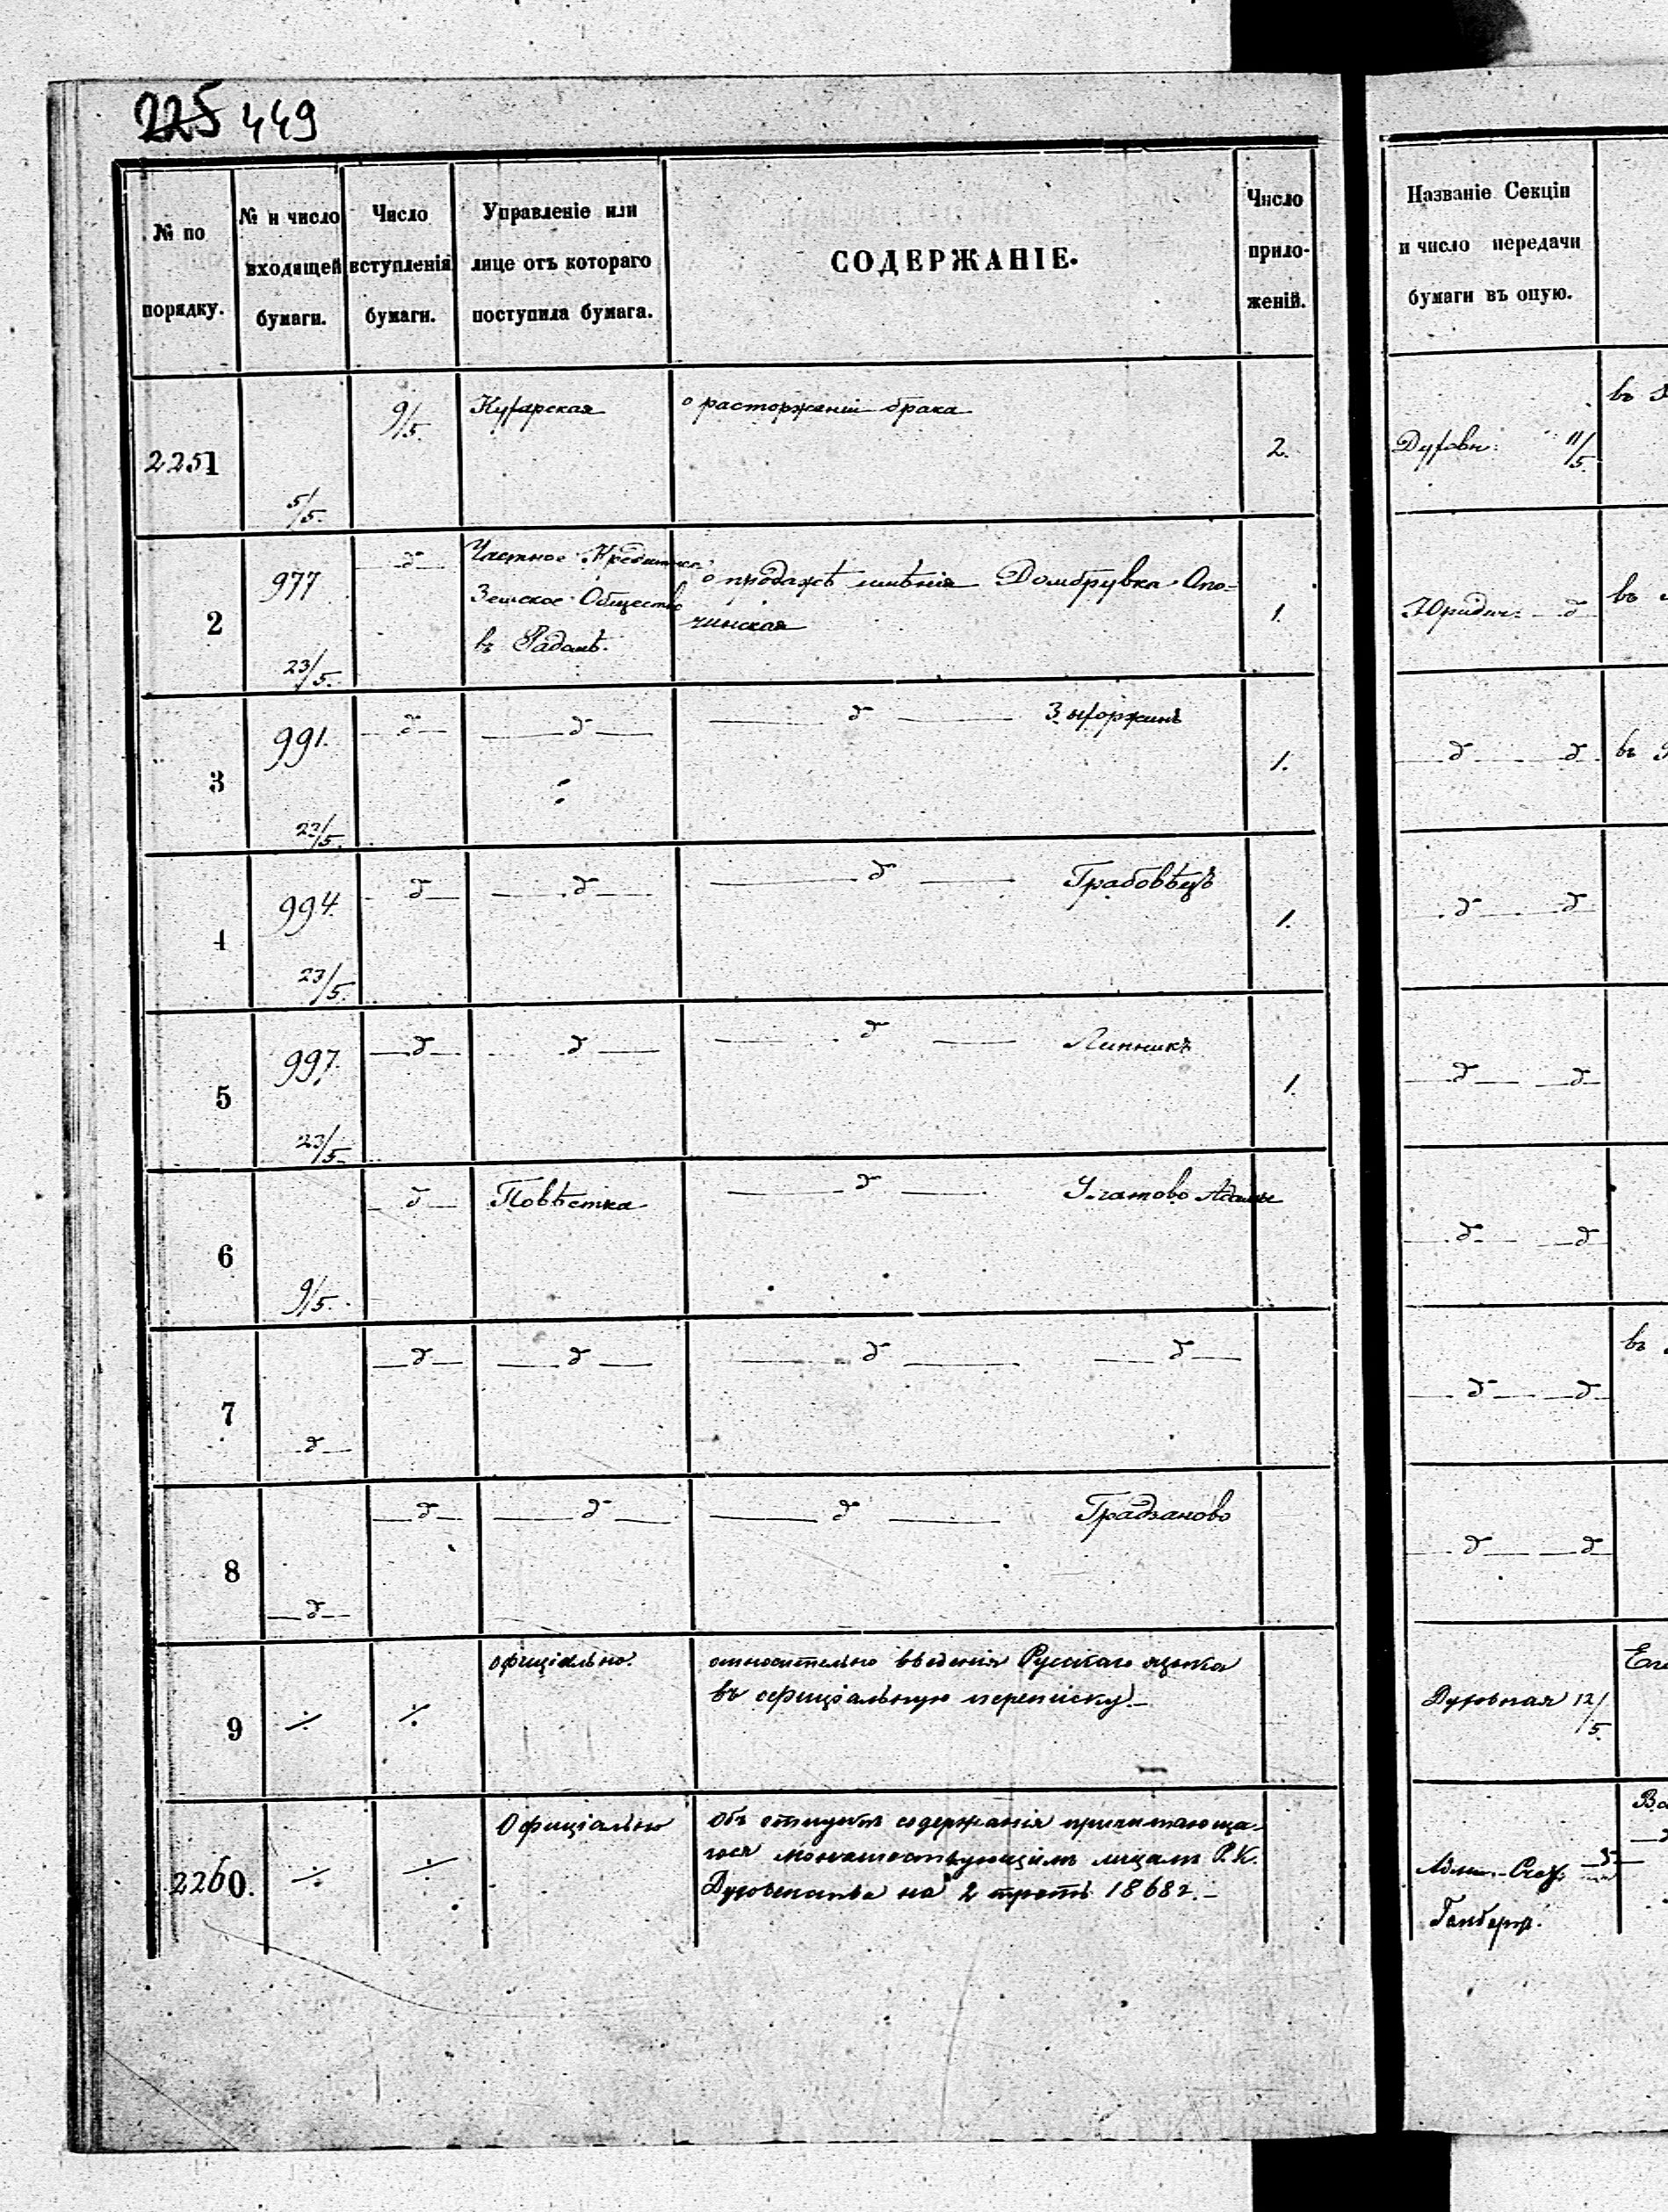 225 449
№ по порядку.
№ и число входящей бумаги.
Число вступленія бумаги.
Управленіе или лице отъ котораго поступила бумага.
СОДЕРЖАНІЕ.
Число прило-женій.
Названіе Секціи и число передачи бумаги въ оную.
2251 5/5. 9/5. Кухарская о расторженіи брака 2. Духовн: 11/5 въ
2 977 23/5. д Частное Кредитное о продажѣ имѣнія Домбрувка Опо-
Земское Общество чинская 1. Юридич: д въ
въ Радомѣ.
3 991. 23/5. д д д Зыхоржинъ 1. д д въ
4 994. 23/5. д д д Грабовѣцъ 1. д д
5 997. 23/5. д д д Липникъ 1. д д
6 9/5. д Повѣстка д Адамы д д
7 д д д д д д д въ
8 д д д д Градзаново д д
9 ÷ ÷ офиціально. относительно введенія Русскаго языка
въ офиціальную переписку.– Духовная 12/5
2260. ÷ ÷ Офиціально Объ отпускѣ содержанія причитающа-
гося монашествующимъ лицамъ Р.К.
Духовенства на 2 треть 1868 г.–